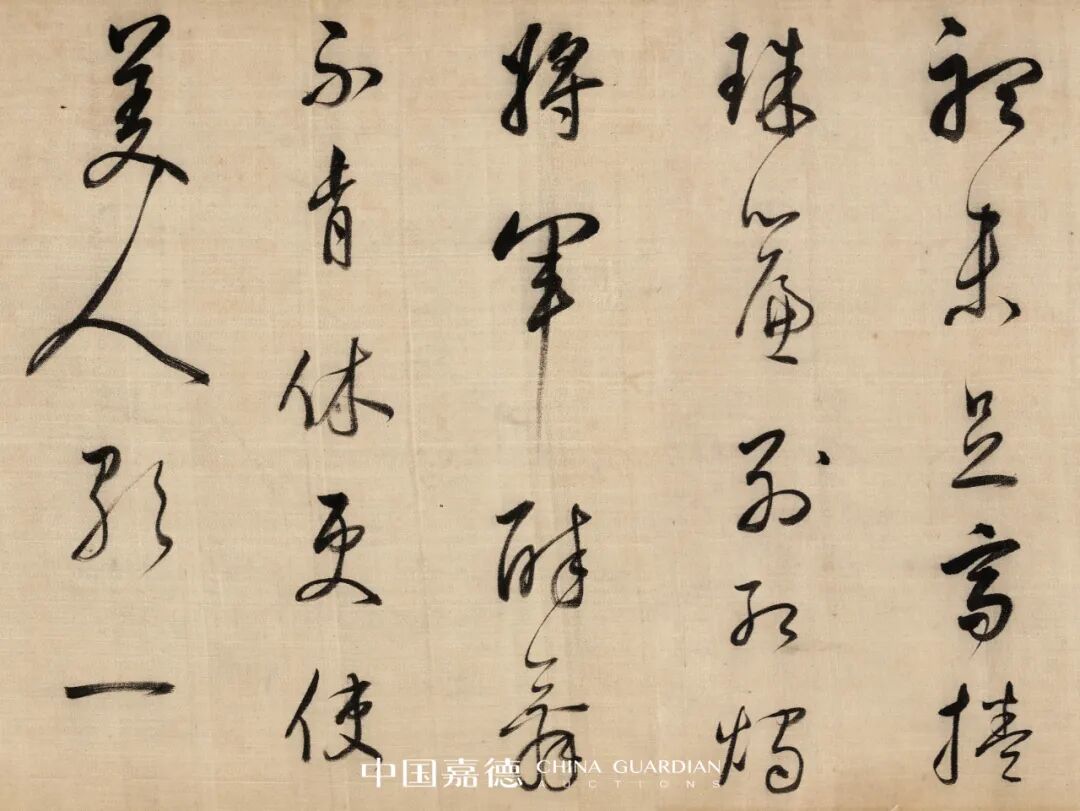 聽未足高捲
珠簾列紅燭
將軍醉舞
不肯休更使
美人歌一
中国嘉德 CHINA GUARDIAN AUCTIONS